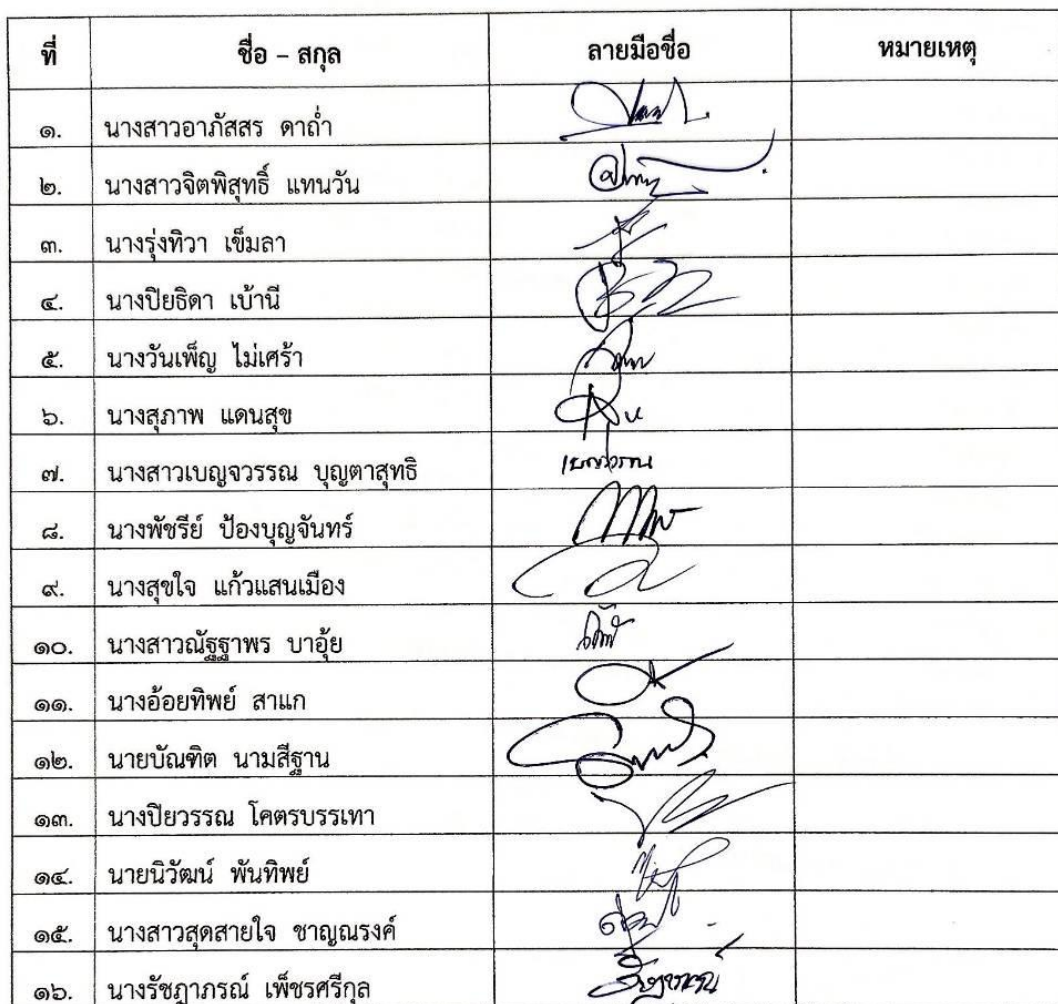 ที่ ชื่อ – สกุล ลายมือชื่อ หมายเหตุ
๑. นางสาวอาภัสสร ดาถ่ำ
๒. นางสาวจิตพิสุทธิ์ แทนวัน
๓. นางรุ่งทิวา เข็มลา
๔. นางปิยธิดา เบ้านี
๕. นางวันเพ็ญ ไม่เศร้า
๖. นางสุภาพ แดนสุข
๗. นางสาวเบญจวรรณ บุญตาสุทธิ เบญจวรรณ
๘. นางพัชรีย์ ป้องบุญจันทร์
๙. นางสุขใจ แก้วแสนเมือง
๑๐. นางสาวณัฐฐาพร บาอุ้ย
๑๑. นางอ้อยทิพย์ สาแก
๑๒. นายบัณฑิต นามสีฐาน
๑๓. นางปิยวรรณ โคตรบรรเทา
๑๔. นายนิวัฒน์ พันทิพย์
๑๕. นางสาวสุดสายใจ ชาญณรงค์
๑๖. นางรัชฎาภรณ์ เพ็ชรศรีกุล